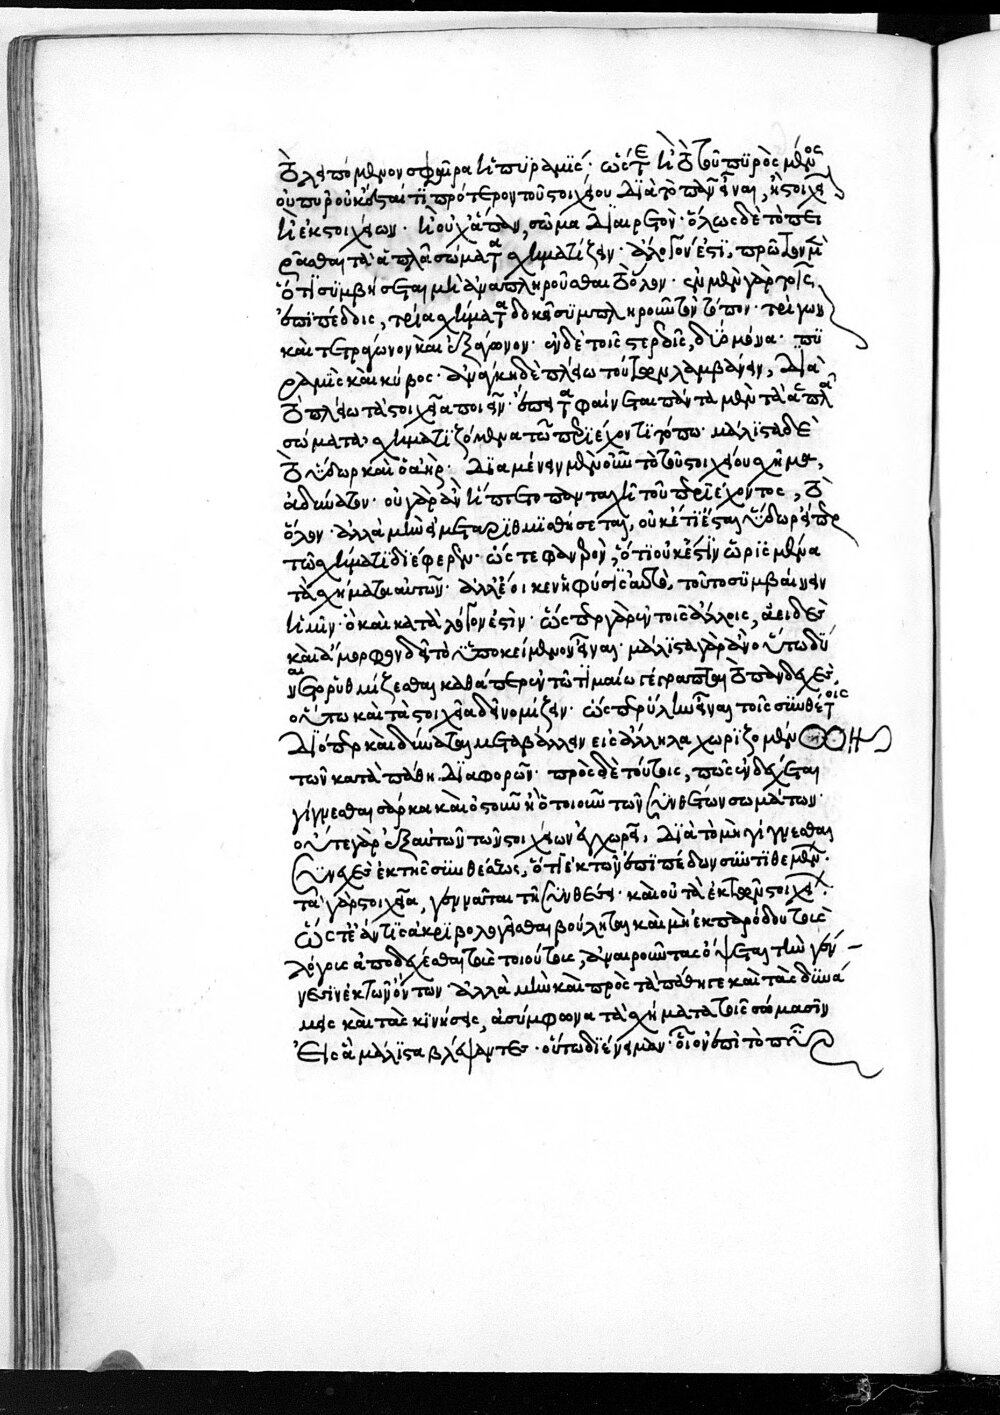 τὸ λειπόμενον σφαῖρα ἢ πυραμίς· ὥστε ἢ τὸ τοῦ πυρὸς μέρος
οὐ πυρ οὐκ ἔσται τι πρότερον τοῦ στοιχείου διὰ τὸ πᾶν εἶναι, ἢ στοιχεῖον
ἢ ἐκ στοιχείων· ἢ οὐχ ἅπαν, σῶμα διαιρετόν· ὅλως δὲ τὸ πει
ρᾶσθαι τὰ ἁπλᾶ σώματα σχηματίζειν· ἄλογόν ἐστι, πρῶτον μὲν
ὅτι συμβήσεται μὴ ἀναπληροῦσθαι τὸ ὅλον· ἐν μὲν γὰρ τοῖς
ἐπιπέδοις, τρία σχήματα δοκεῖ συμπληροῦν τὸν τόπον· τρίγωνον
καὶ τετράγωνον καὶ ἑξάγωνον· ἐν δὲ τοῖς στερεοῖς, δύο μόνα· πυ
ραμὶς καὶ κύβος· ἀνάγκη δὲ πλείω τούτων λαμβάνειν, διὰ
τὸ πλείω τὰ στοιχεῖα ποιεῖν· ἔπειτα φαίνεται πάντα μὲν τὰ ἁπλᾶ
σώματα σχηματιζόμενα τῷ περιέχοντι τόπῳ· μάλιστα δὲ
τὸ ὕδωρ καὶ ὁ ἀήρ· διαμένειν μὲν οὖν τὸ τοῦ στοιχείου σχῆμα,
ἀδύνατον· οὐ γὰρ ἂν ἥπτετο πανταχῆ τοῦ περιέχοντος, τὸ
ὅλον· ἀλλὰ μὴν εἰ μεταρυθμισθήσεται, οὐκέτι ἔσται ὕδωρ εἴπερ
τῷ σχήματι διέφερεν· ὥστε φανερὸν, ὅτι οὐκ ἔστιν ὡρισμένα
τὰ σχήματα αὐτῶν· ἀλλ' ἔοικεν ἡ φύσις αὐτὸ, τοῦτο συμβαίνειν
ἡμῖν· ὃ καὶ κατὰ λόγον ἐστίν· ὥσπερ γὰρ ἐν τοῖς ἄλλοις, ἀειδὲς
καὶ ἄμορφον δεῖ τὸ ὑποκείμενον εἶναι· μάλιστα γὰρ ἂν οὕτω δύ
ναιτο ῥυθμίζεσθαι καθάπερ ἐν τῷ τιμαίῳ γέγραπται τὸ πανδεχὲς·
οὕτω καὶ τὰ στοιχεῖα δεῖ νομίζειν· ὥσπερ ὕλην εἶναι τοῖς συνθέτοις
διόπερ καὶ δύναται μεταβάλλειν εἰς ἄλληλα χωριζομένων
τῶν κατὰ πάθη διαφορῶν· πρὸς δὲ τούτοις, πῶς ἐνδέχεται
γίγνεσθαι σάρκα καὶ ὀστοῦν ἢ ὁτιοῦν τῶν συνθέτων σωμάτων·
οὔτε γὰρ ἐξ αὐτῶν τῶν στοιχείων ἐγχωρεῖ, διὰ τὸ μὴ γίγνεσθαι
συνεχὲς ἐκ τῆς συνθέσεως, ὅτι ἐκ τῶν ἐπιπέδων συντιθεμένων·
τὰ γὰρ στοιχεῖα, γεννᾶται τῇ συνθέσει· καὶ οὐ τὰ ἐκ τῶν στοιχείων·
ὥστ' ἐάν τις ἀκριβολογεῖσθαι βούληται καὶ μὴ ἐκ παρόδου τοὺς
λόγους ἀποδέχεσθαι τοὺς τοιούτους, ἀναιροῦντας ὄψεται τὴν γέν
νεσιν ἐκ τῶν ὄντων· ἀλλὰ μὴν καὶ πρὸς τὰ πάθη τε καὶ τὰς δυνά
μεις καὶ τὰς κινήσεις, ἀσύμφωνα τὰ σχήματα τοῖς σώμασιν
εἰς ἃ μάλιστα βλέψαντες· οὕτω διένειμαν· οἷον ἐπὶ τὸ πῦρ